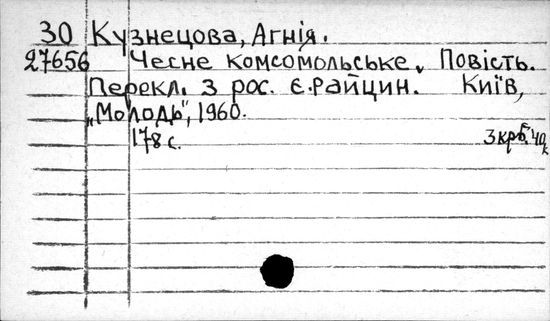 30 Кузнецова, Агнія.
27656 Чесне комсомольське. Повість.
Перекл. з рос. Є. Райцин. Київ,
„Молодь", 1960.
178 с. 3 крб. 40 к